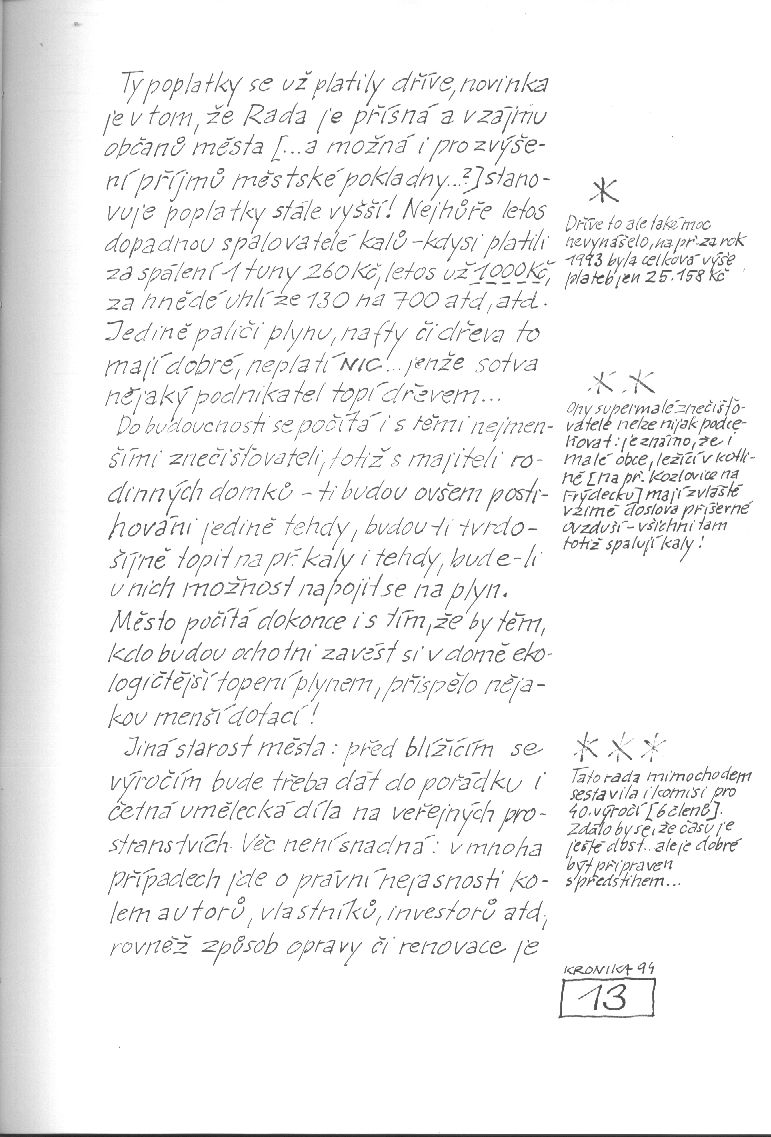 Ty poplatky se už platily dříve, novinka
je v tom, že Rada je přísná a v zájmu
občanů města [...a možná i pro zvýše-
ní příjmů městské pokladny...?] stano-
vuje poplatky stále vyšší! Nejhůře letos
dopadnou spalovatelé kalů - kdysi platili
za spálení 1 tuny 260 Kč, letos už 1000 Kč,
za hnědé uhlí ze 130 na 700 atd, atd.
Jedině paliči plynu, nafty či dřeva to
mají dobré, neplatí NIC!...jenže sotva
nějaký podnikatel topí dřevem...
Do budoucnosti se počítá i s těmi nejmen-
šími znečišťovateli, totiž s majiteli ro-
dinných domků - ti budou ovšem posti-
hováni jedině tehdy, budou-li tvrdo-
šíjně topit např. kaly i tehdy, bude-li
u nich možnost napojit se na plyn.
Město počítá dokonce i s tím, že by těm,
kdo budou ochotni zavést si v domě eko-
logičtější topení plynem, přispělo něja-
kou menší dotací!
Jiná starost města: před blížícím se
výročím bude třeba dát do pořádku i
četná umělecká díla na veřejných pro-
stranstvích. Věc není snadná: v mnoha
případech jde o právní nejasnosti ko-
lem autorů, vlastníků, investorů atd,
rovněž způsob opravy či renovace je
*
Dříve to ale také moc
nevynášelo, na př. za rok
1993 byla celková výše
plateb jen 25.158 Kč
* *
Ony supermalé znečišťo-
vatele nelze nijak podce-
ňovat: je známo, že i
malé obce, ležící v kotli-
ně [na př. Kozlovice na
Frýdecku] mají zvláště
v zimě doslova příšerné
ovzduší - všichni tam
totiž spalují kaly!
* * *
Tato rada mimochodem
sestavila i komisi pro
40. výročí [6 členů].
Zdálo by se, že času je
ještě dost... ale je dobré
být připraven
s předstihem...
KRONIKA 94
13